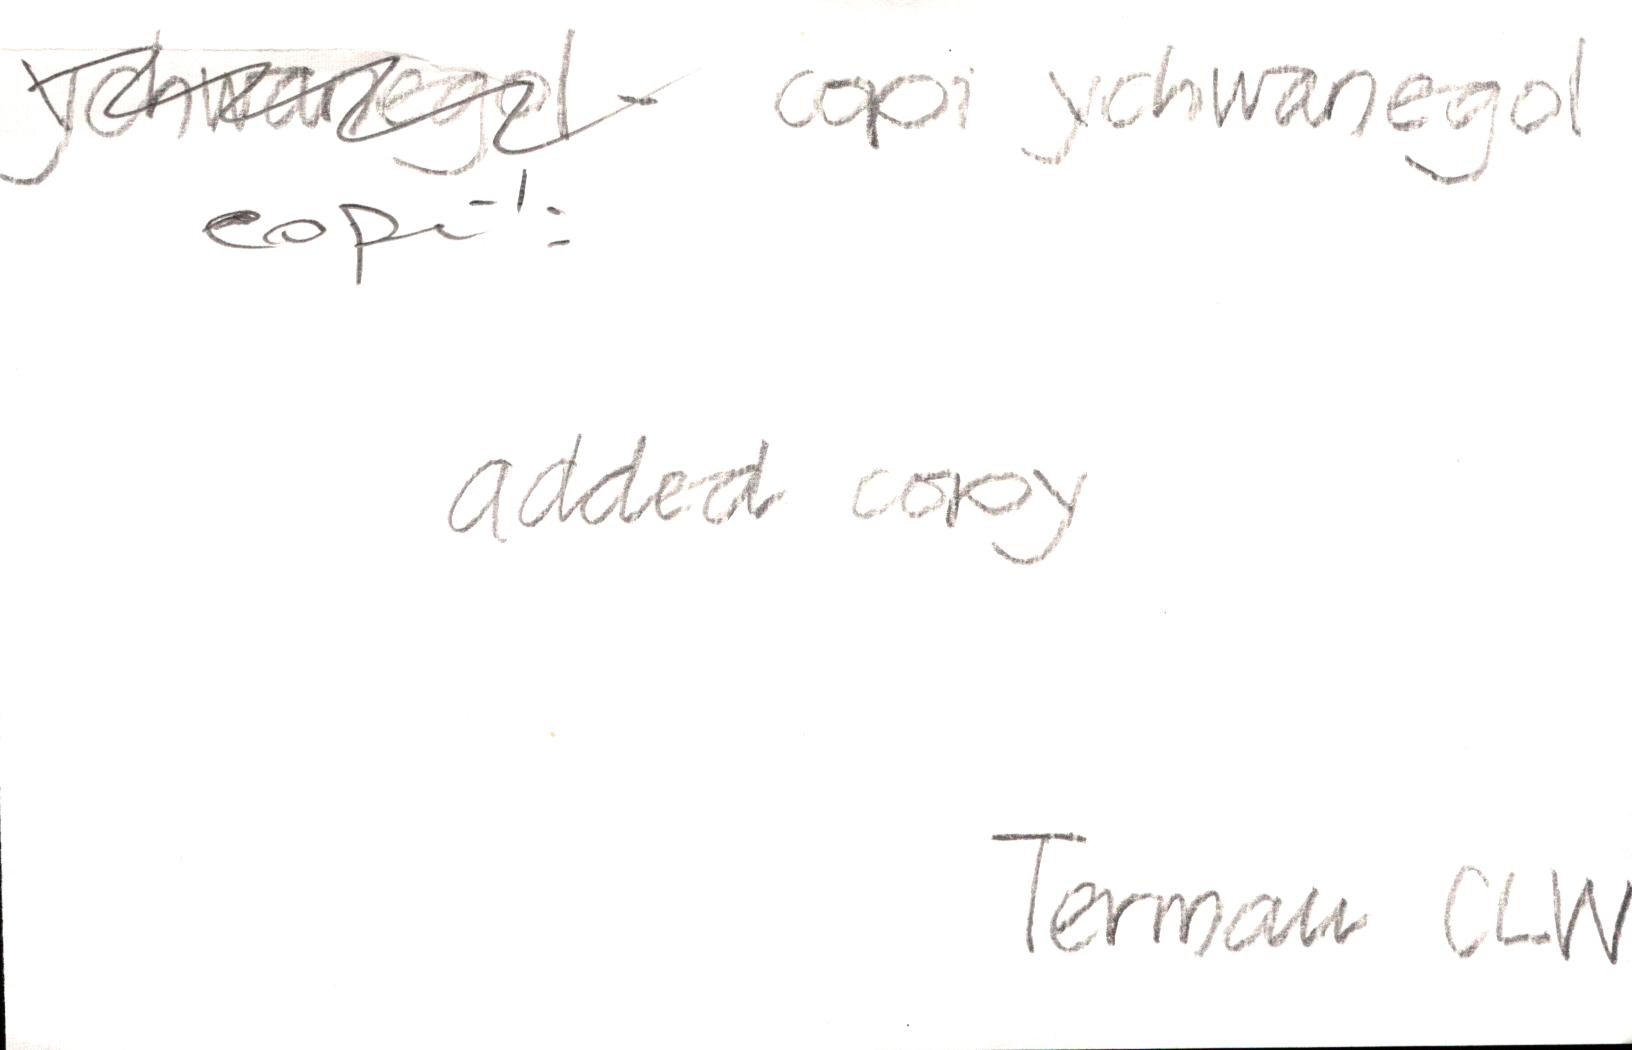 ychwanegol - copi ychwanegol
copi -':
added copy
Termau CLW